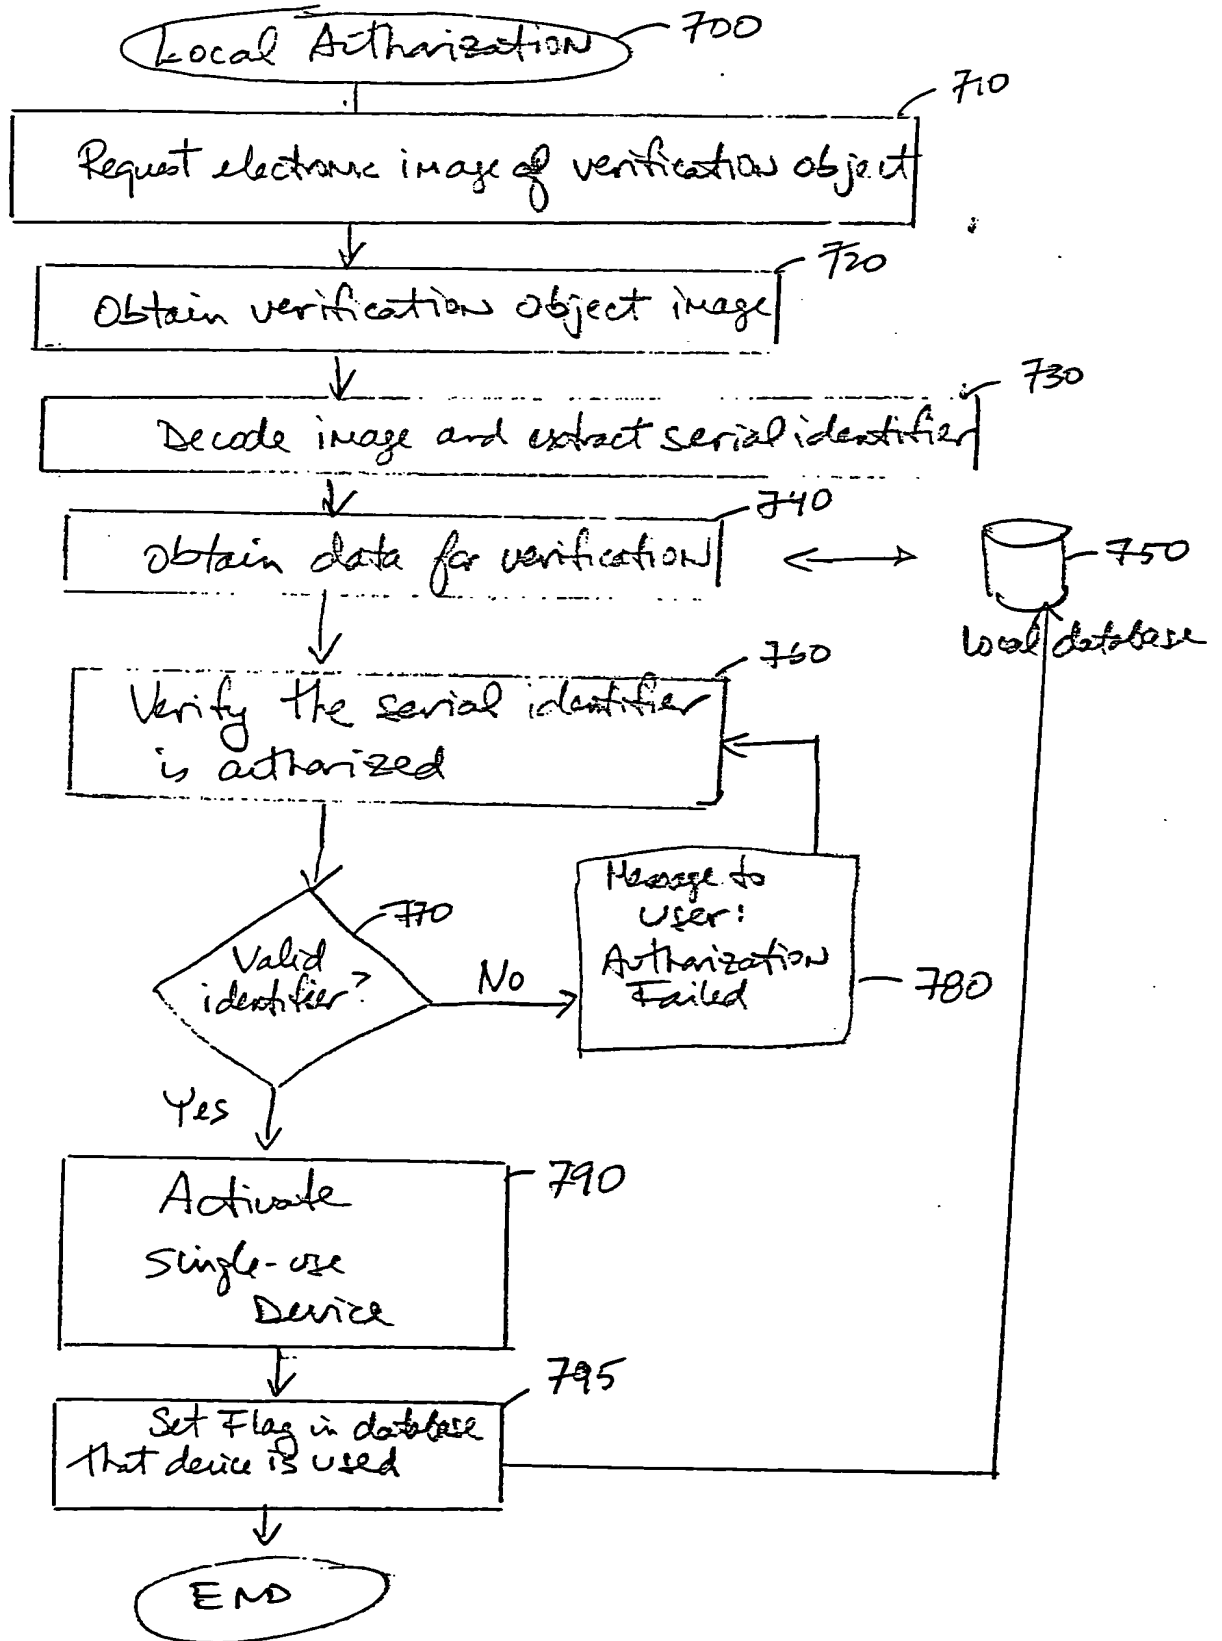 Local Authorization
700
710
Request electronic image of verification object
720
Obtain verification object image
730
Decode image and extract serial identifier
740
Obtain data for verification
750
local database
760
Verify the serial identifier
is authorized
770
Valid
identifier?
No
Message to
User:
Authorization
Failed
780
Yes
790
Activate
Single-use
Device
795
Set Flag in database
that device is used
END